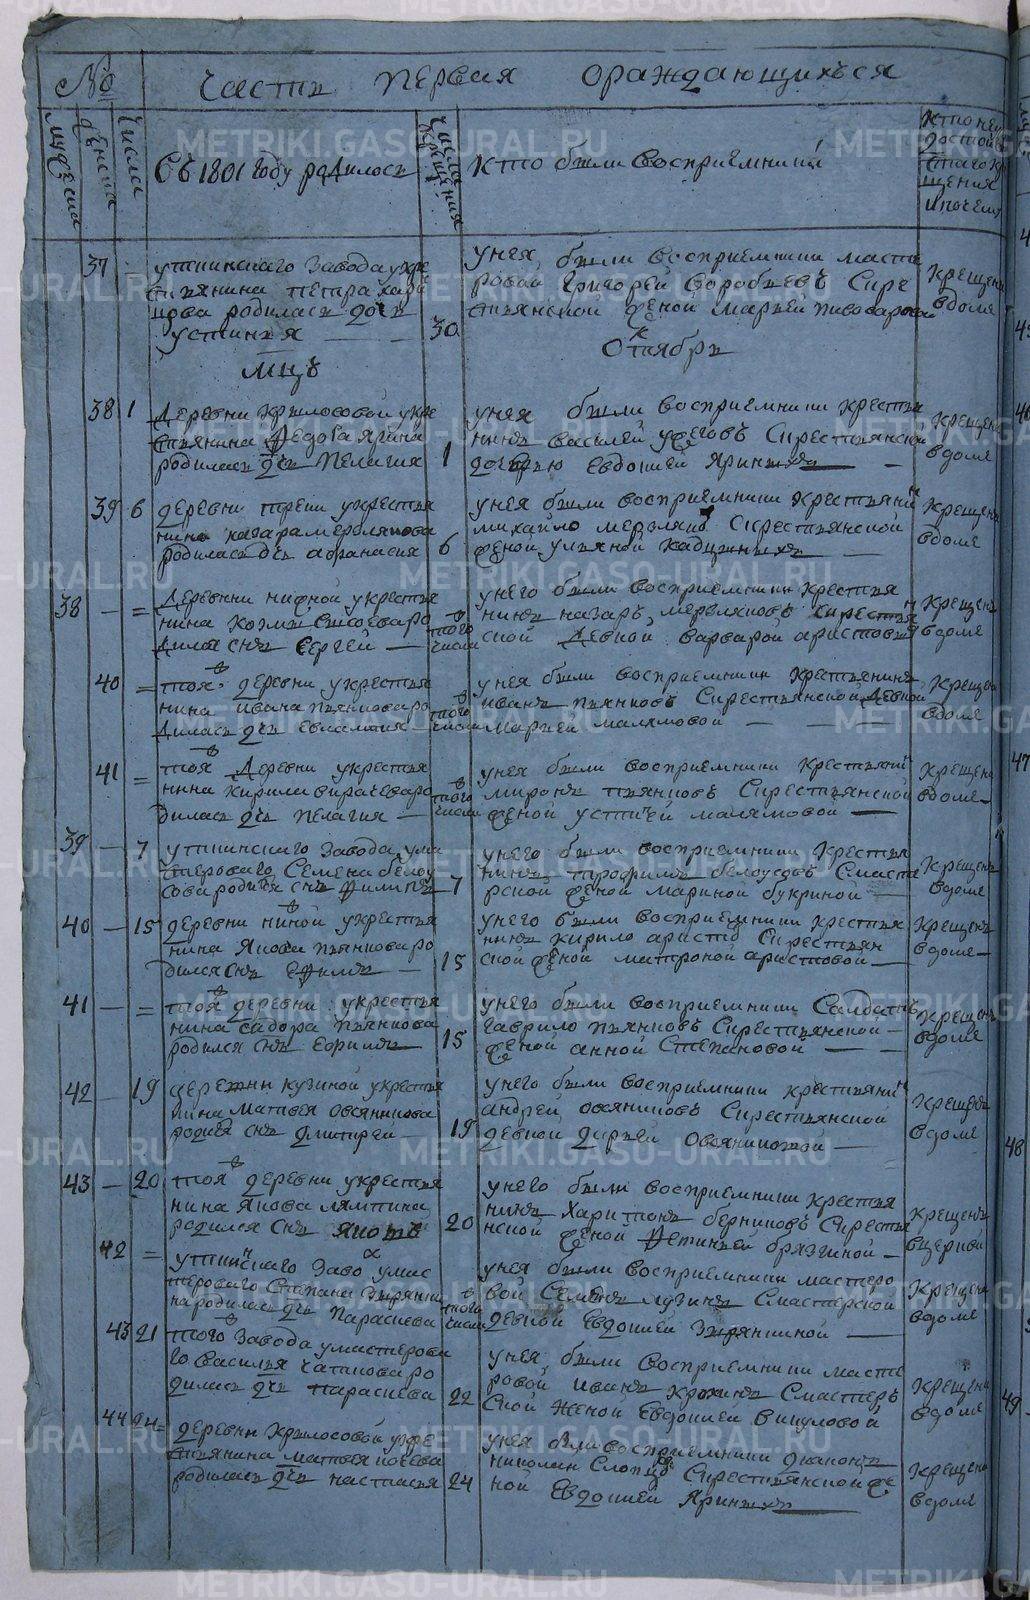 №
Часть первая ораждающихъся
мужеска
женска
числа
Съ 1801 году родилось
числа
крещения
кто были восприемники
кто не
удостой
стаго кр
щения
и почему
37
уткинскаго завода у кре
стьянина петра хари
родилась дочь
устинья
30
у нея были восприемники масте
ровой григорей воробьевъ скре
стьянской женой марьей пивоваровой
крещена
вдоме
мцъ
Октябрь
38 1
деревни крылосовой у кре
стьянина федора ярина
родилась дчь пелагия
1
у нея были восприемники крестья
нинъ василей скрестьянской
дочерью евдокией яриных
крещена
вдоме
39 6
деревни треки укрестья
нина назара мерзлякова
родилась дчь афанасия
6
у нея были восприемники крестьянинъ
михайло мерзляковъ скрестьянской
женой ульяной
крещена
вдоме
38 — =
деревни нижной укрестья
нина козмы сысоева ро
дился снъ сергей —
того
числа
у него были восприемники крестья
нинъ назаръ мерзляковъ скрестьян
ской девкой варварой аристовой
крещенъ
вдоме
40 =
тояж деревни укрестья
нина ивана пьянкова ро
дилась дчь —
того
числа
у нея были восприемники крестьянинъ
иванъ пьянковъ скрестьянской девкой
марьей малямовой — —
крещена
вдоме
41 =
тояж деревни укрестья
нина кирила вирачева ро
дилась дчь пелагия —
того
числа
у нея были восприемники крестьянинъ
миронъ пьянковъ скрестьянской
женой устиньей малямовой —
крещена
вдоме —
39 — 7
уткинскаго завода у ма
стероваго семена белоу
сова родился снъ филипъ
7
у него были восприемники крестья
нинъ трофимъ белоусовъ смасте
рской женой мариной букриной —
крещенъ
вдоме
40 — 15
деревни нижной укрестья
нина якова пьянкова ро
дился снъ ефимъ —
15
у него были восприемники крестья
нинъ кирило аристов скрестьян
ской женой матроной аристовой —
крещенъ
вдоме —
41 — =
тояж деревни укрестья
нина сидора пьянкова
родился снъ ефимъ
15
у него были восприемники салдатъ
гаврило пьянковъ скрестьянской —
женой анной степановой — —
крещенъ
вдоме
42 — 19
деревни кузиной укрестья
нина матвея овсянникова
родился снъ дмитрей
19
у него были восприемники крестьянинъ
андрей овсяниковъ скрестьянской
девкой дарьей овсяниковой —
крещенъ
вдоме
43 — 20
тояж деревни укрестья
нина якова лямпина
родился снъ яковъ
20
у него были восприемники крестья
нинъ харитонъ берниковъ скрестья
нской женой фетиньей брязгиной —
крещенъ
вцеркви
42 =
уткинскаго заво умас
тероваго степана зырянки
на родилась дчь параскева
того
числа
у нея были восприемники мастеро
вой семенъ лузинъ смастерской
девкой евдокией зырянкиной —
крещена
вдоме
43 21
тогож завода умастерова
го василья чатпкова ро
дилась дчь параскева
22
у нея были восприемники масте
ровой иванъ крохинъ смастеръ
ской женой евдокией викуловой
крещена
вдоме
44 24 =
деревни крылосовой укре
стьянина матвея
родилась дчь настасья
24
у нея были восприемники дьяконъ
николай слопцовъ скрестьянской же
ной евдокией яриных
крещена
вдоме